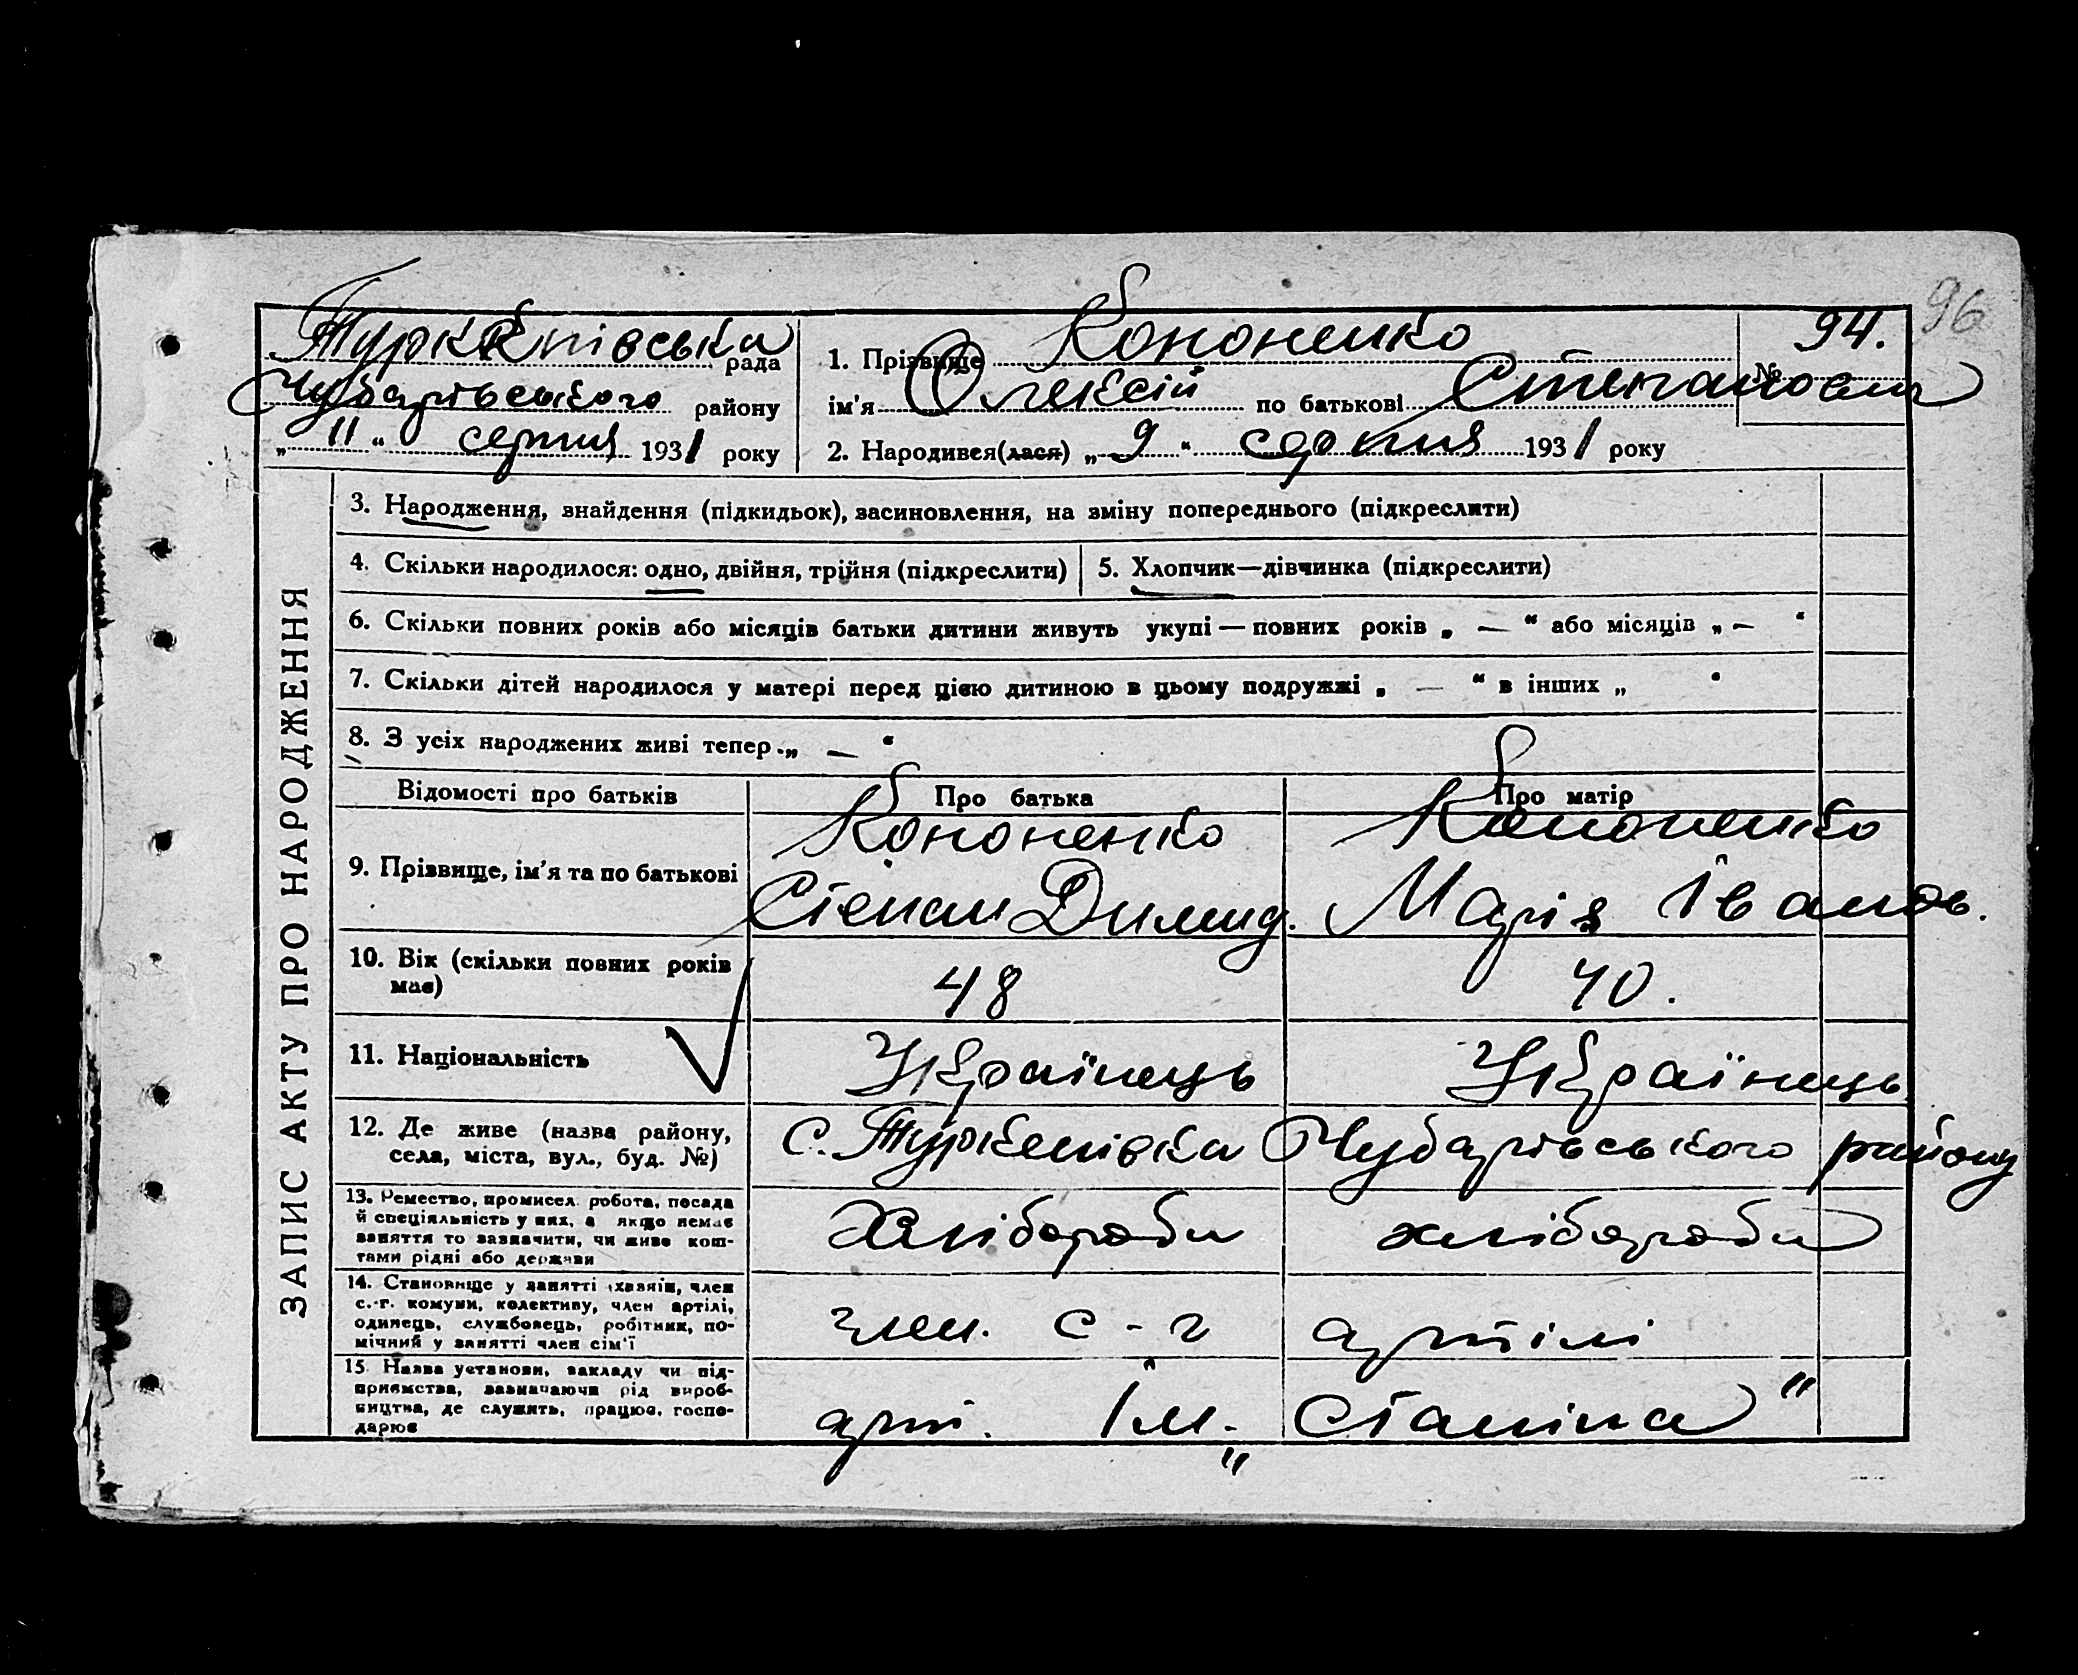 96
Туркенівська рада
Чубарівського району
„ 11 “ серпня 1931 року
1. Прізвище Кононенко
№ 94.
ім'я Олексій по батькові Степанович
2. Народився(лася) „ 9 “ серпня 1931 року
ЗАПИС АКТУ ПРО НАРОДЖЕННЯ
3. Народження, знайдення (підкидьок), засиновлення, на зміну попереднього (підкреслити)
4. Скільки народилося: одно, двійня, трійня (підкреслити)
5. Хлопчик—дівчинка (підкреслити)
6. Скільки повних років або місяців батьки дитини живуть укупі — повних років „ — “ або місяців „ — “
7. Скільки дітей народилося у матері перед цією дитиною в цьому подружжі „ — “ в інших „ “
8. З усіх народжених живі тепер „ — “
Відомості про батьків Про батька Про матір
9. Прізвище, ім'я та по батькові
Кононенко
Степан Димид.
Кононенко
Марія Іванов.
10. Вік (скільки повних років
має)
48
40.
11. Національність
Українець
Українець
12. Де живе (назва району,
села, міста, вул., буд. №)
с. Туркенівка Чубарівського району
13. Ремество, промисел, робота, посада
й спеціяльність у них, а якщо немає
заняття то зазначити, чи живе кош-
тами рідні або держави
Хлібороби
хлібороби
14. Становище у занятті (хазяїн, член
с.-г. комуни, колективу, член артілі,
одинець, службовець, робітник, по-
мічний у занятті член сім'ї
член. с-г артілі
15. Назва установи, закладу чи під-
приємства, зазначаючи рід вироб-
ництва, де служить, працює, госпо-
дарює
арт. Ім. „Сталіна“